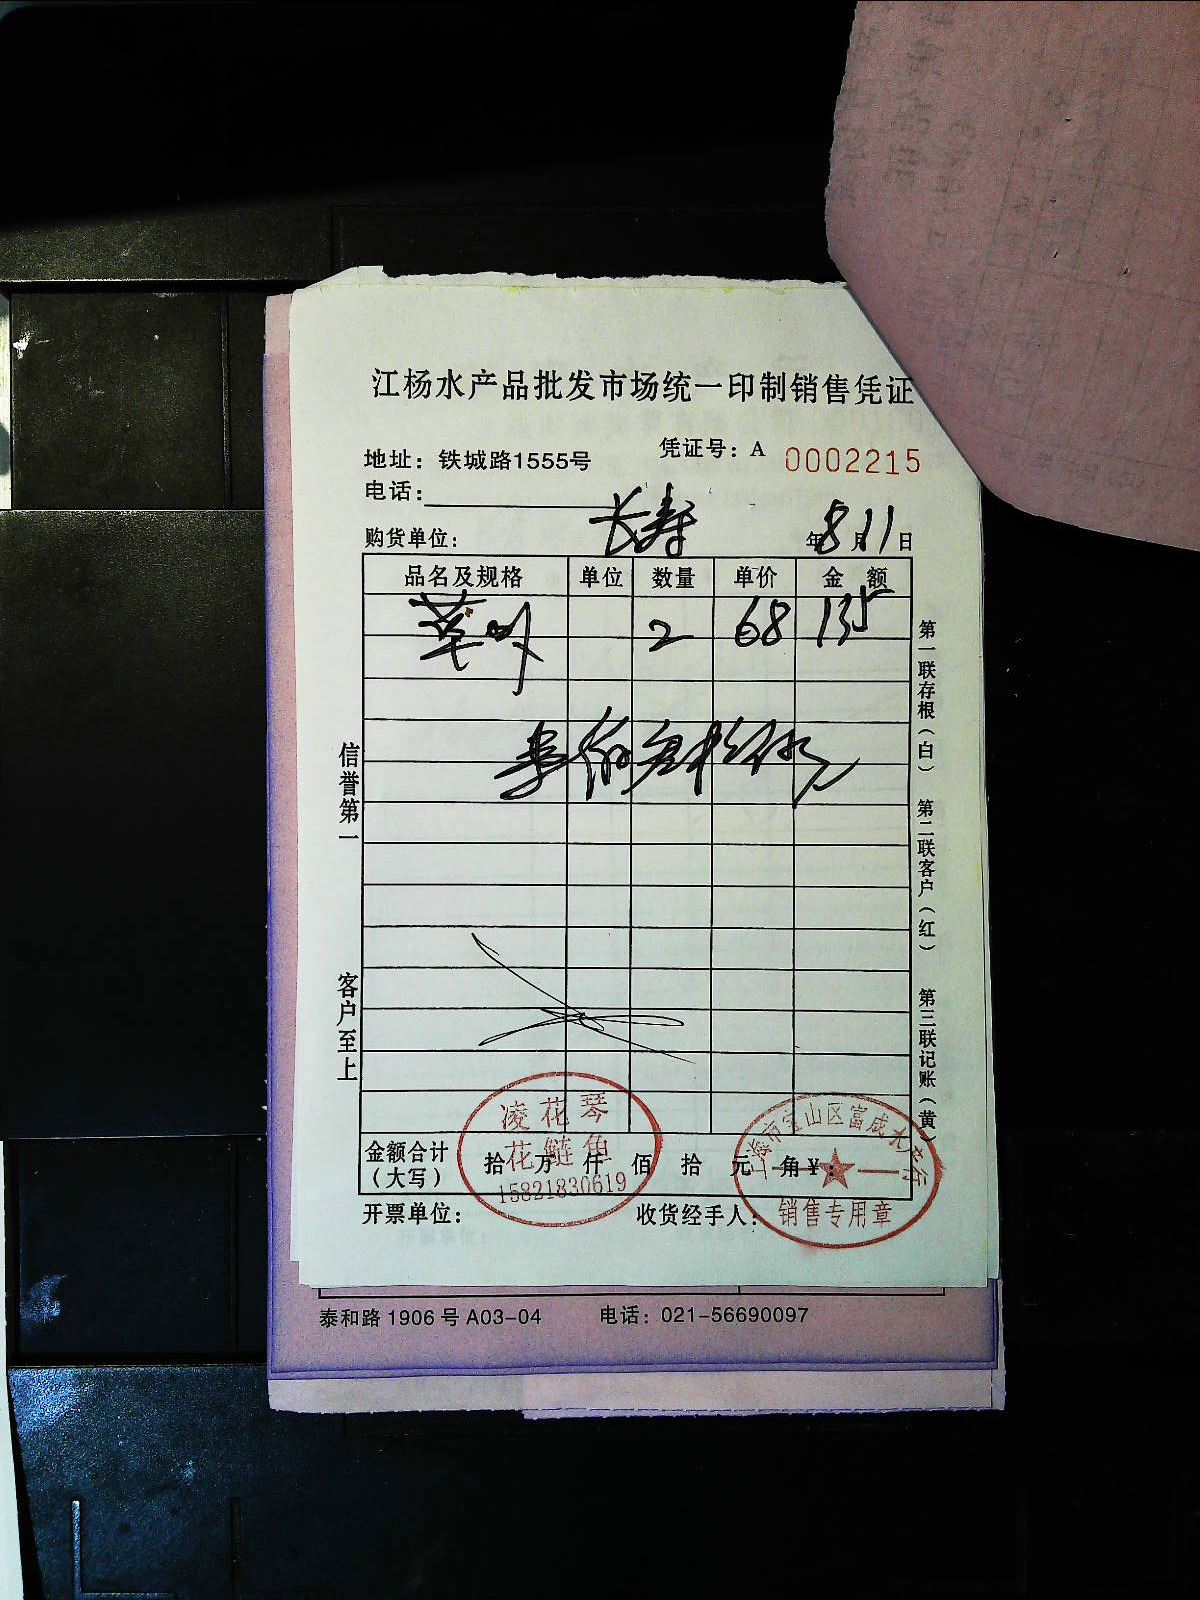 江杨水产品批发市场统一印制销售凭证
地址：铁城路1555号 凭证号：A 0002215
电话：
购货单位： 长寿 年8月11日
品名及规格 单位 数量 单价 金 额
2 68 135
壹佰叁拾伍元
信誉第一
客户至上
第一联存根（白） 第二联客户（红） 第三联记账（黄）
金额合计（大写） 拾 万 仟 佰 拾 元 角 ¥：
凌花琴
花鲢鱼
15821830619
上海市宝山区富成水产行
销售专用章
开票单位： 收货经手人：
泰和路 1906 号 A03-04 电话：021-56690097